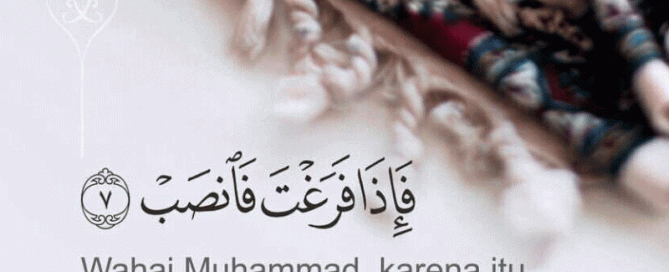 فَإِذَا فَرَغْتَ فَٱنصَبْ ٧
Wahai Muhammad, karena itu